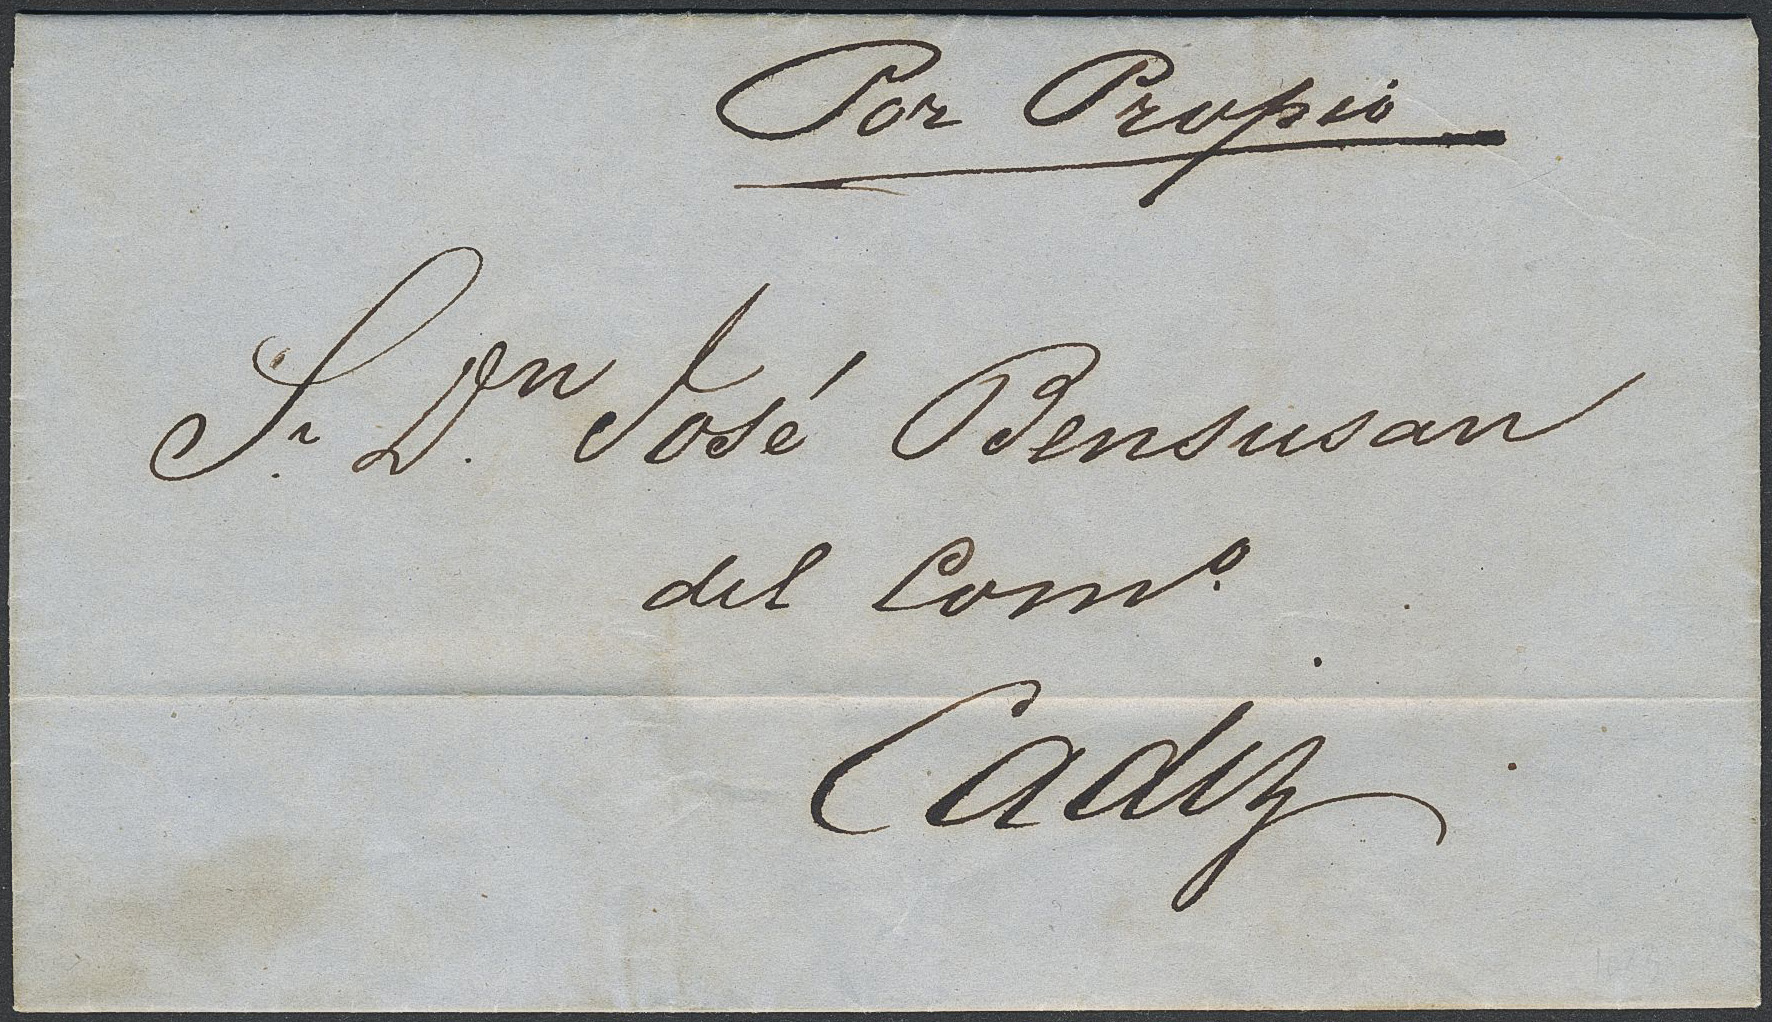 Por Propio
Sr. Dn. José Bensusan
del Comº.
Cadiz